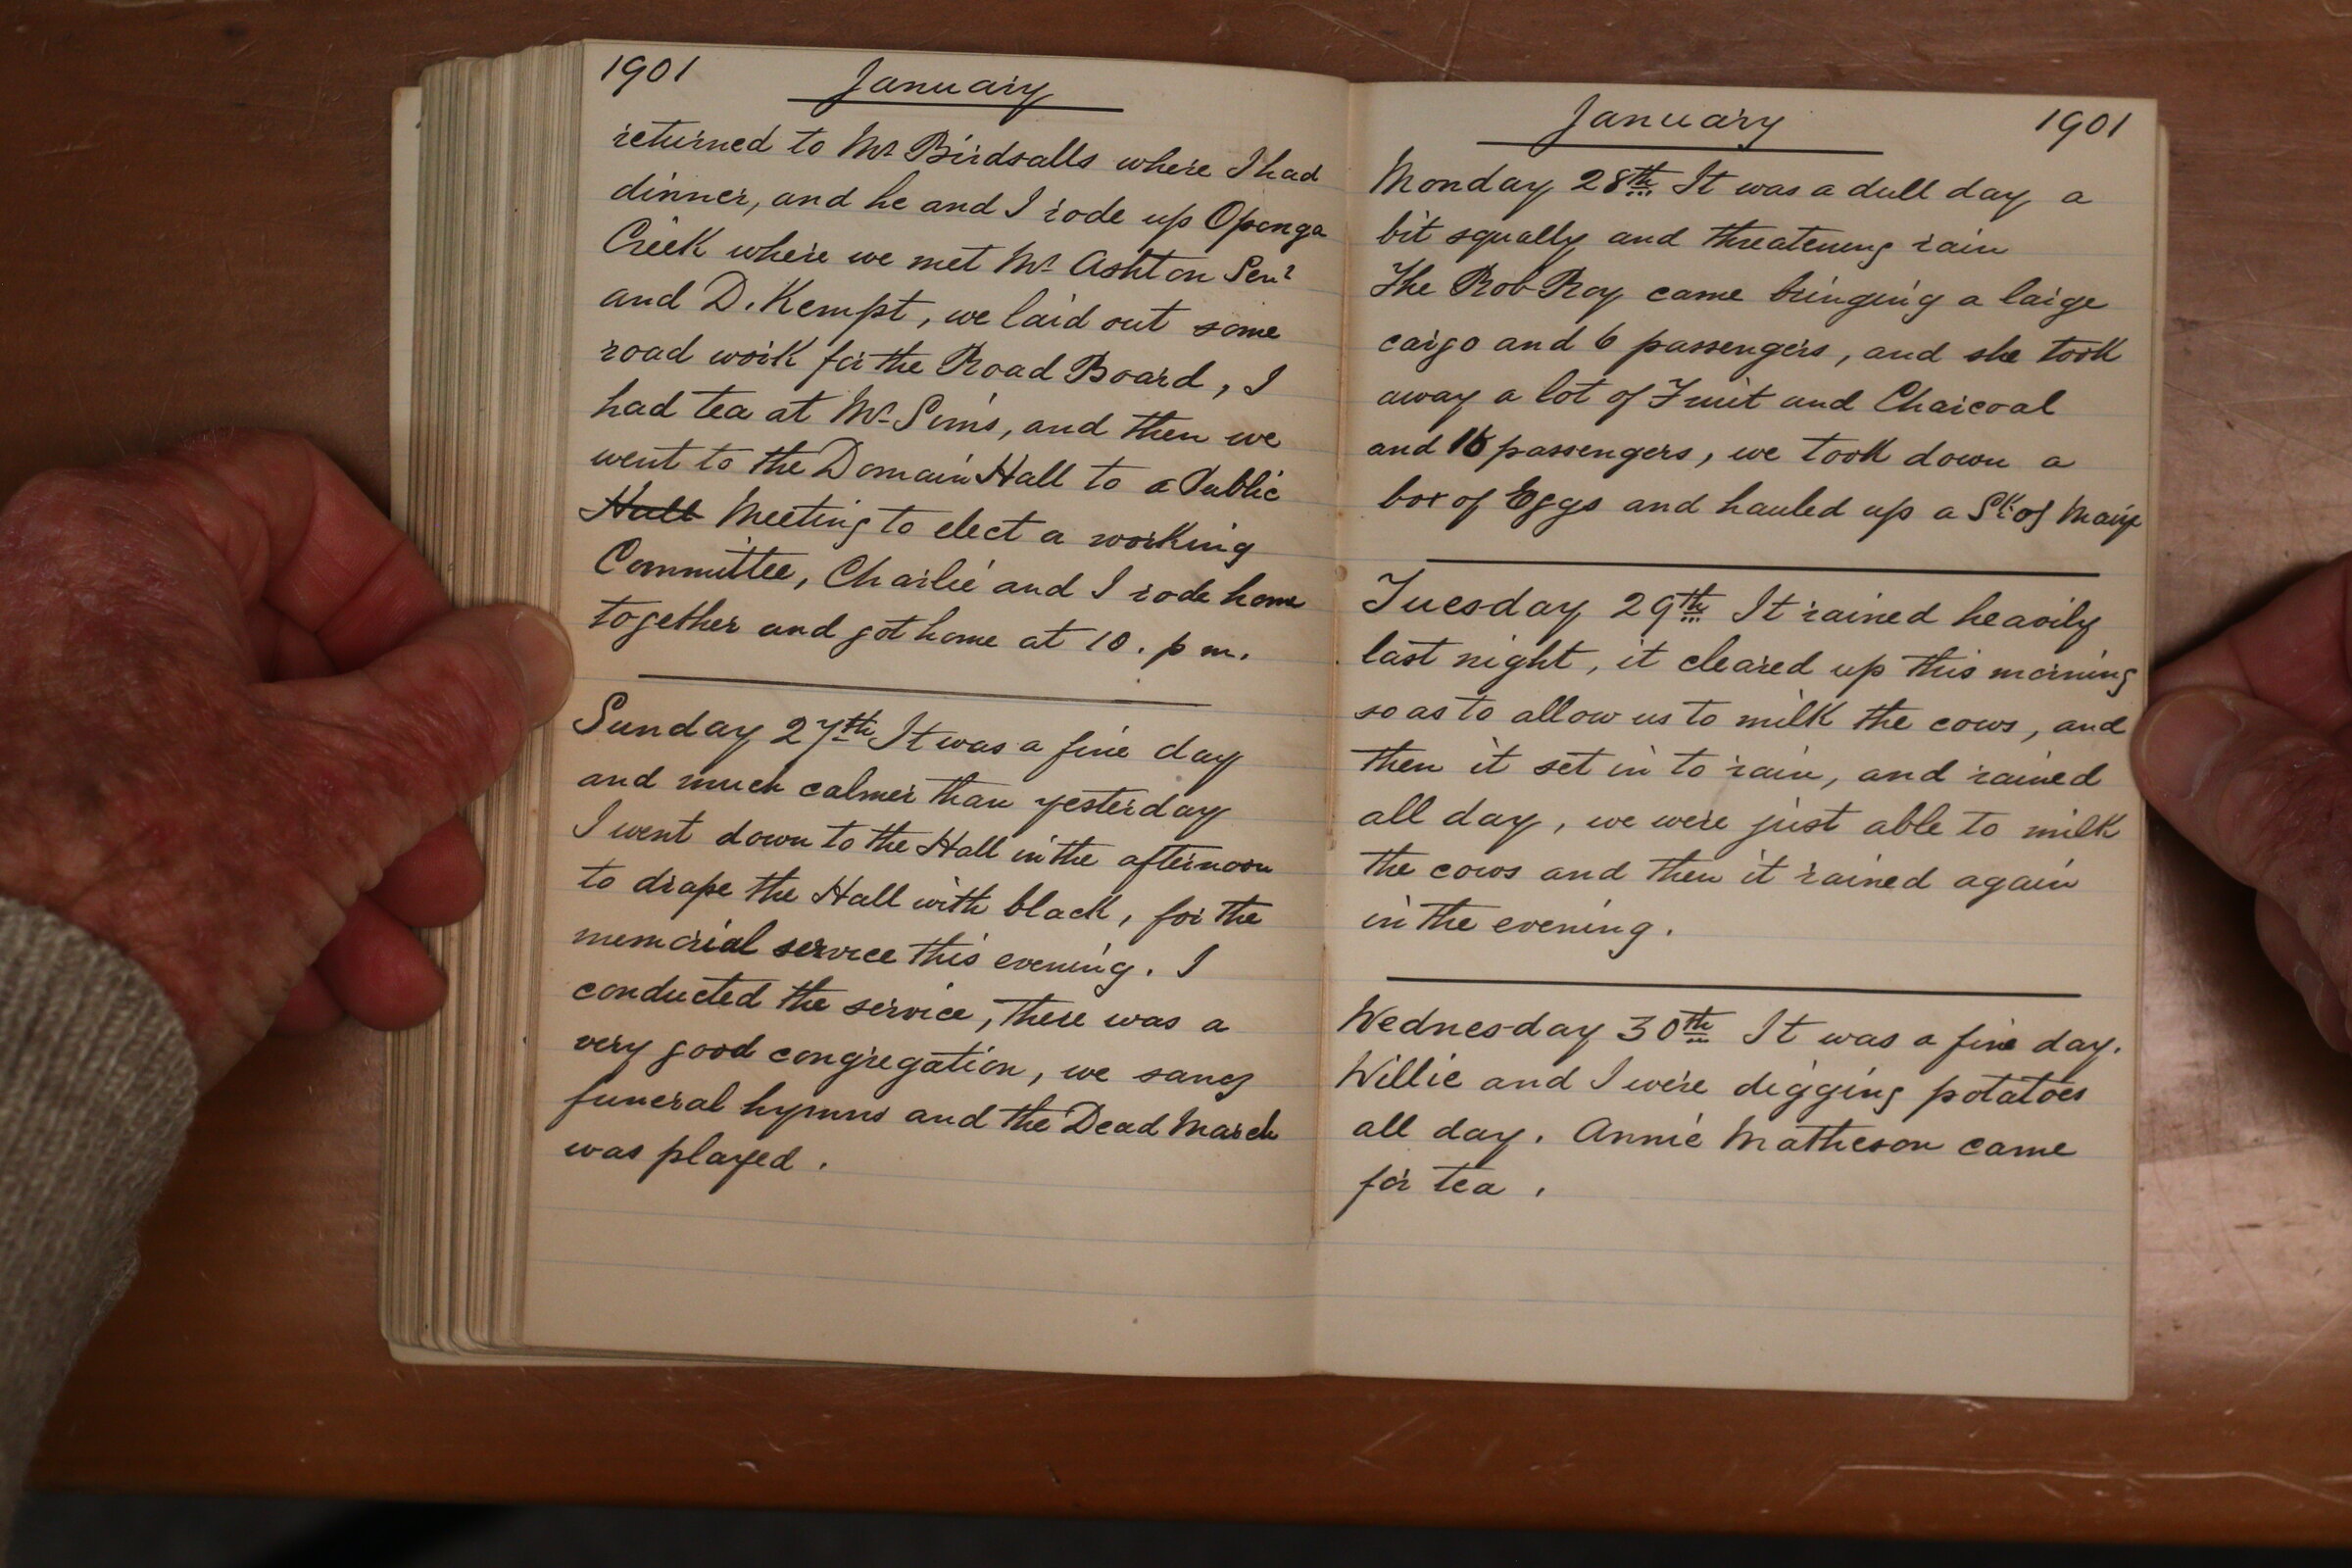 1901 January
returned to Mr Birdsalls where I had
dinner, and he and I rode up Oponga
Creek where we met Mr Ashton Senr
and D. Kempt, we laid out some
road work for the Road Board, I
had tea at Mr Sims, and then we
went to the Domain Hall to a Public
Hall Meeting to elect a working
Committee, Charlie and I rode home
together and got home at 10. p m.
Sunday 27th It was a fine day
and much calmer than yesterday
I went down to the Hall in the afternoon
to drape the Hall with black, for the
memorial service this evening. I
conducted the service, there was a
very good congregation, we sang
funeral hymns and the Dead March
was played.
January 1901
Monday 28th It was a dull day a
bit squally and threatening rain
The Rob Roy came bringing a large
cargo and 6 passengers, and she took
away a lot of Fruit and Charcoal
and 16 passengers, we took down a
box of Eggs and hauled up a Sk of
Tuesday 29th It rained heavily
last night, it cleared up this morning
so as to allow us to milk the cows, and
then it set in to rain, and rained
all day, we were just able to milk
the cows and then it rained again
in the evening.
Wednesday 30th It was a fine day.
Willie and I were digging potatoes
all day. Annie Matheson came
for tea.